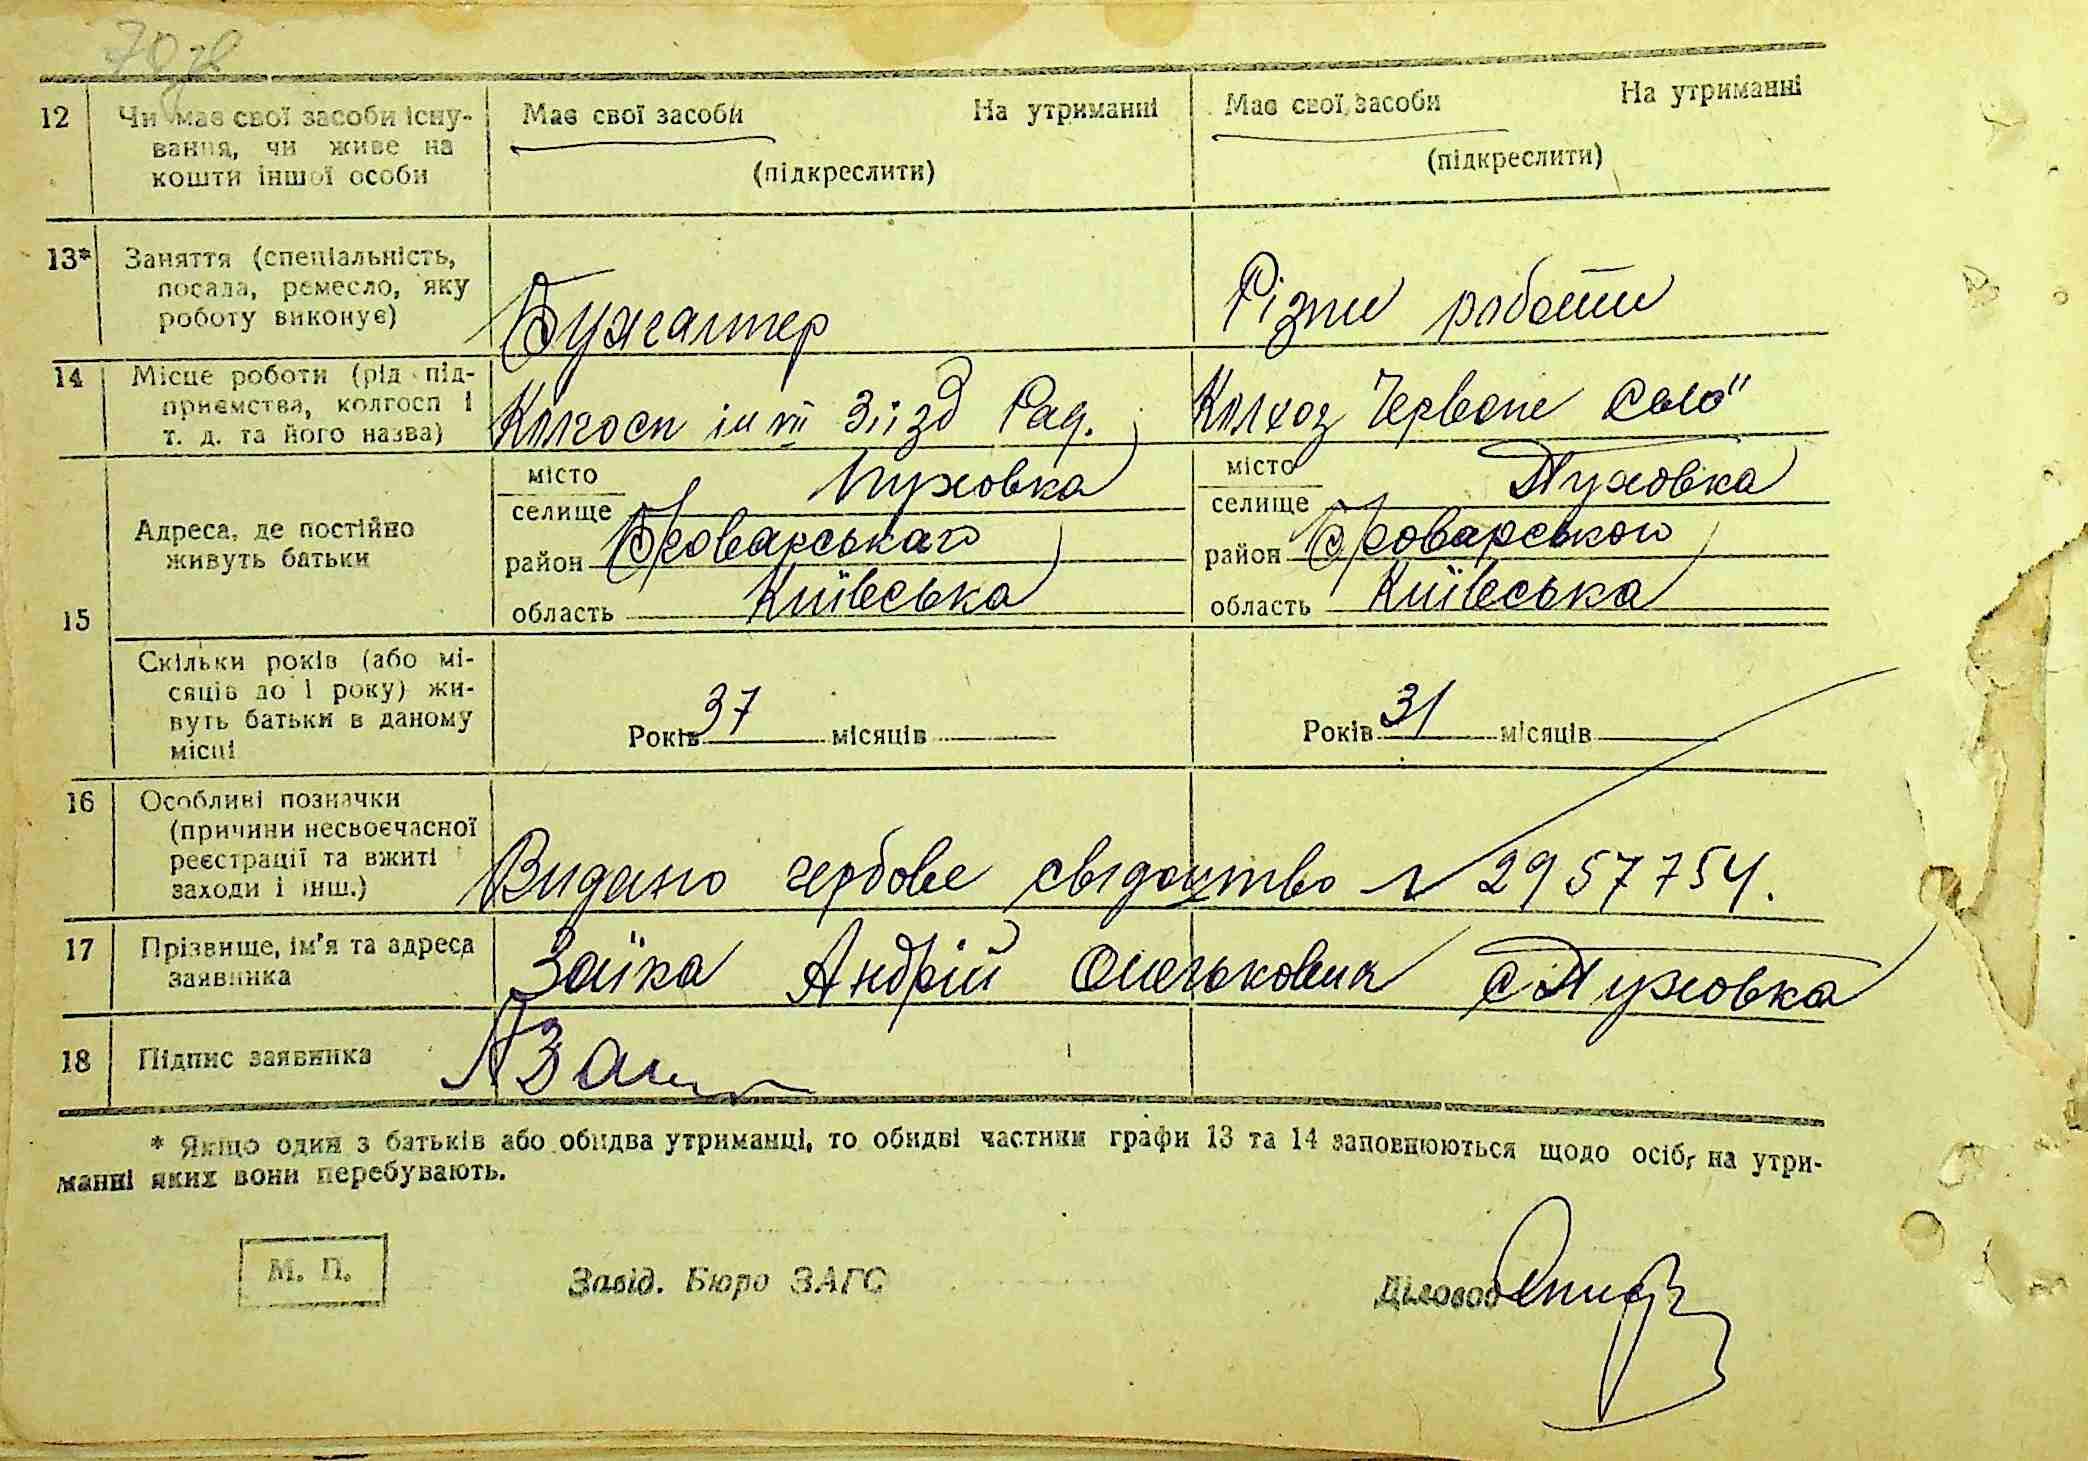 70 зв
12 Чи має свої засоби існу- Має свої засоби На утриманні Має свої засоби На утриманні
вання, чи живе на (підкреслити) (підкреслити)
кошти іншої особи
13* Заняття (спеціальність,
посада, ремесло, яку
роботу виконує) Бухгалтер Різни работи
14 Місце роботи (рід під-
приємства, колгосп і
т. д. та його назва) Колгосп ім VII Зїізд Рад. Колхоз Червоне Село"
15 Адреса, де постійно
живуть батьки
місто Пуховка місто Пуховка
селище селище
район Броварського район Броварського
область Київська область Київська
Скільки років (або мі-
сяців до 1 року) жи-
вуть батьки в даному
місці
Років 37 місяців Років 31 місяців
16 Особливі позначки
(причини несвоєчасної
реєстрації та вжиті
заходи і інш.) Видано гербове свідоцтво № 2957754.
17 Прізвище, ім'я та адреса
заявника Заїка Андрій с Пуховка
18 Підпис заявника
* Якщо один з батьків або обидва утриманці, то обидві частини графи 13 та 14 заповнюються щодо осіб, на утри-
манні яких вони перебувають.
М. П. Завід. Бюро ЗАГС Діловод